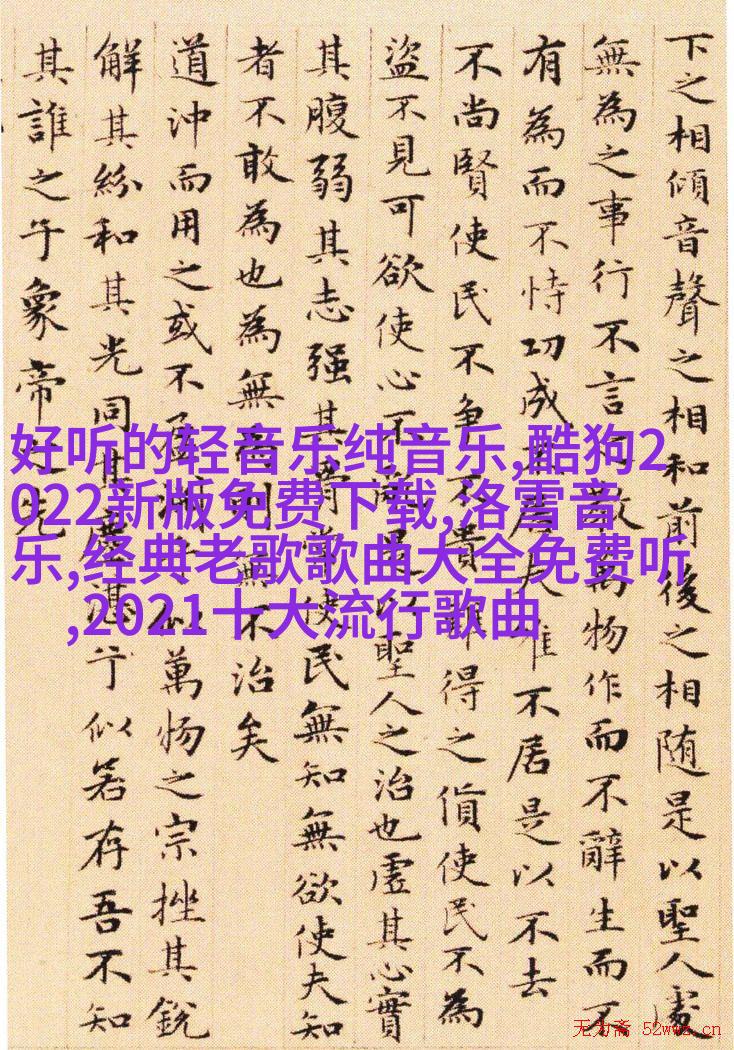 下之相傾音聲之相和前後之相随是以聖人處
無為之事行不言教萬物作而不辭生而不
有為而不恃功成居夫唯不居是以不去
不尚賢使民不争不貴難得之貨使民不為
盗不見可欲使心不是以聖人之治也虚其心實
其腹弱其志强其骨常使民無知無欲使夫知
者不敢為也為無為則無不治矣
道沖而用之或不盈乎似萬物之宗挫其銳
解其紛和其光同其塵湛乎似若存吾不知
其誰之子象帝之先
好听的轻音乐纯音乐,酷狗2
022新版免费下载,洛雪音
乐,经典老歌歌曲大全免费听
,2021十大流行歌曲
无为斋 52wwz.cn